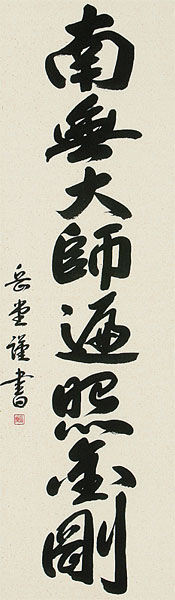 南無大師遍照金剛
岳堂謹書